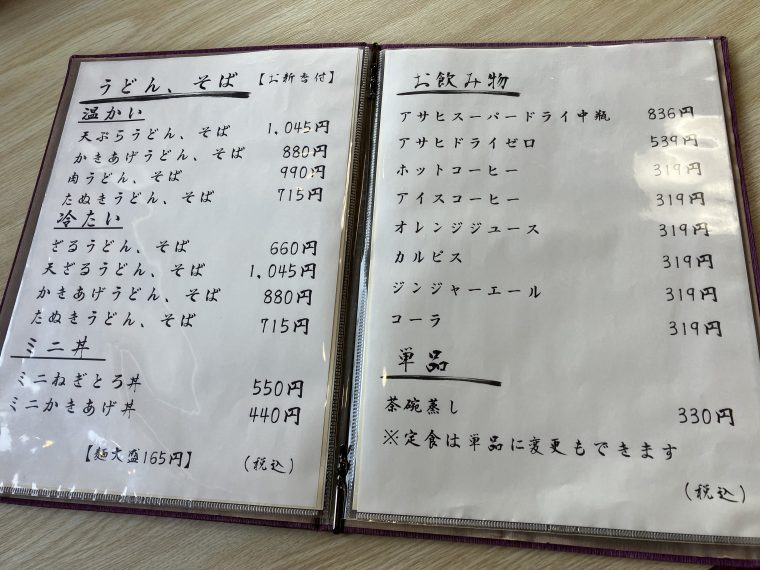 うどん、そば 【お新香付】
温かい
天ぷらうどん、そば 1,045円
かきあげうどん、そば 880円
肉うどん、そば 990円
たぬきうどん、そば 715円
冷たい
ざるうどん、そば 660円
天ざるうどん、そば 1,045円
かきあげうどん、そば 880円
たぬきうどん、そば 715円
ミニ丼
ミニねぎとろ丼 550円
ミニかきあげ丼 440円
【麺大盛165円】 (税込)
お飲み物
アサヒスーパードライ中瓶 836円
アサヒドライゼロ 539円
ホットコーヒー 319円
アイスコーヒー 319円
オレンジジュース 319円
カルピス 319円
ジンジャーエール 319円
コーラ 319円
単品
茶碗蒸し 330円
※定食は単品に変更もできます
(税込)